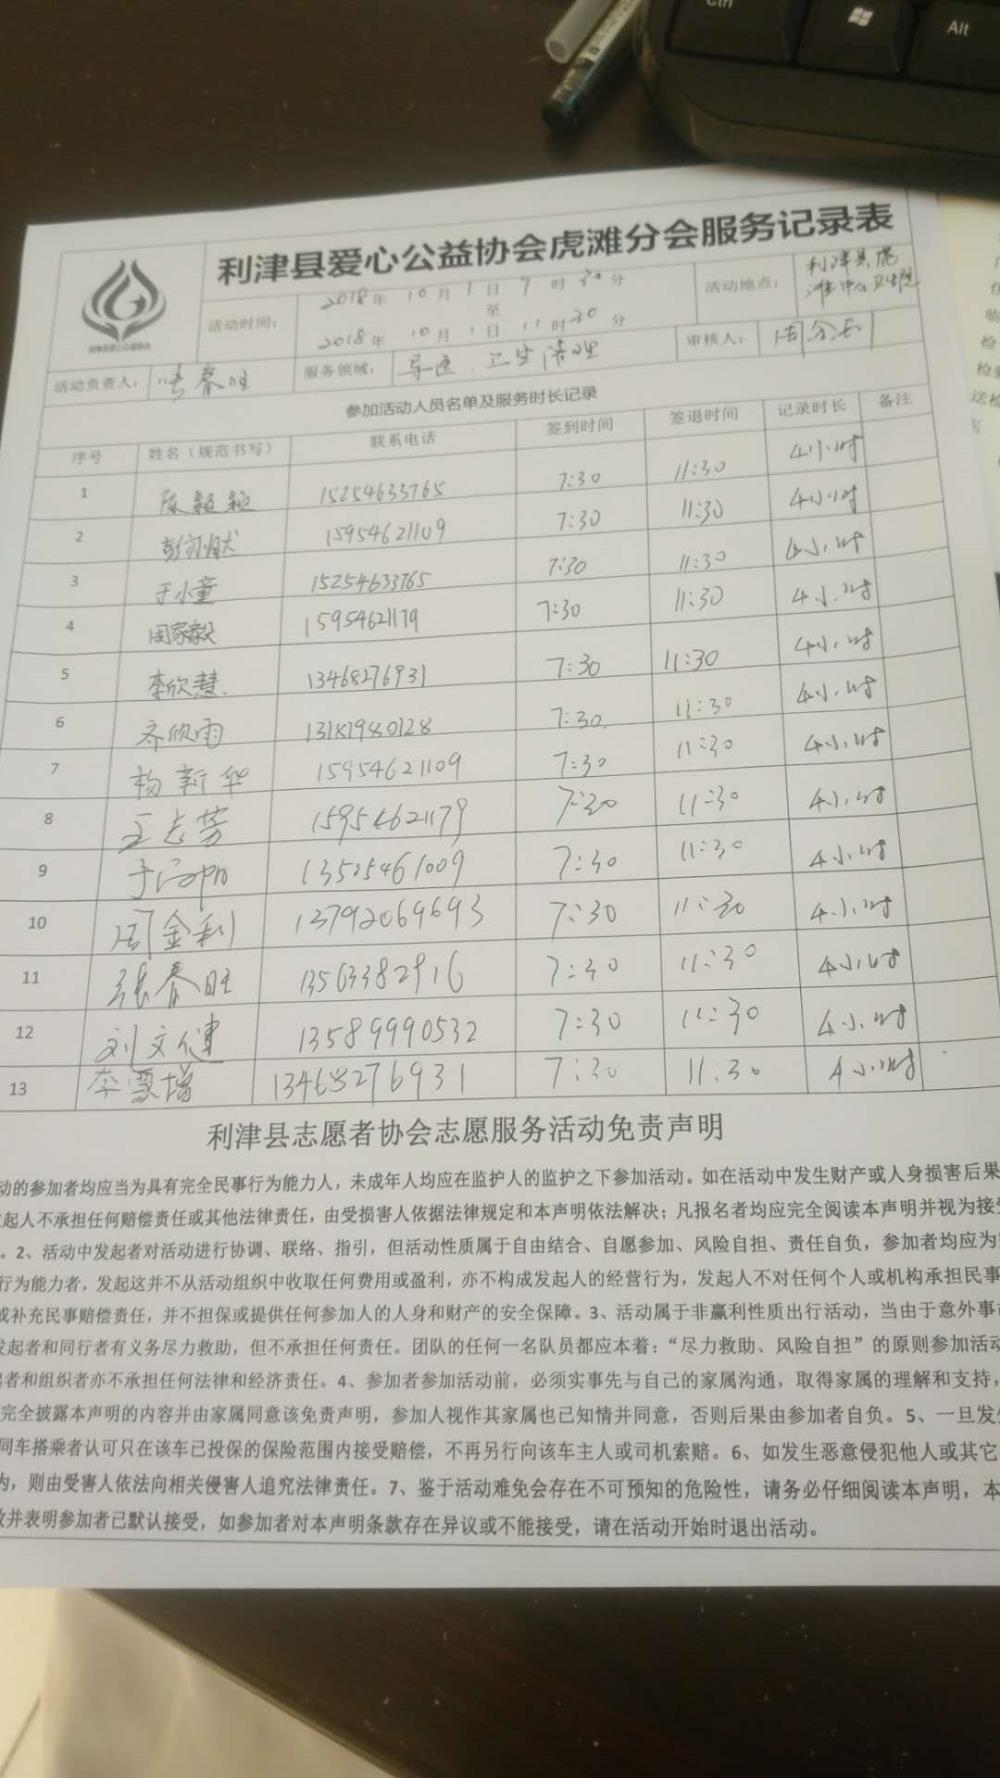 Ctrl
Alt
利津县爱心公益协会虎滩分会服务记录表
活动时间：
2018年 10月1日 7时30分
至
2018年 10月1日 11时30分
活动地点：
利津县虎
滩中心卫生院
活动负责人：
春旺
服务领域：
导医、卫生清理
审核人：
周
参加活动人员名单及服务时长记录
序号 姓名（规范书写） 联系电话 签到时间 签退时间 记录时长 备注
1 15254633765 7:30 11:30 4小时
2 15954621109 7:30 11:30 4小时
3 于小童 15254633765 7:30 11:30 4小时
4 周家毅 15954621179 7:30 11:30 4小时
5 李欣慧 13468276931 7:30 11:30 4小时
6 齐欣雨 13181980128 7:30 11:30 4小时
7 杨新华 15954621109 7:30 11:30 4小时
8 王志芳 15954621179 7:30 11:30 4小时
9 于 7:30 11:30 4小时
10 周金利 13792069693 7:30 11:30 4小时
11 张春旺 13563382916 7:30 11:30 4小时
12 刘文健 13589990532 7:30 11:30 4小时
13 李雪增 13468276931 7:30 11:30 4小时
利津县志愿者协会志愿服务活动免责声明
动的参加者均应当为具有完全民事行为能力人，未成年人均应在监护人的监护之下参加活动。如在活动中发生财产或人身损害后果
起人不承担任何赔偿责任或其他法律责任，由受损害人依据法律规定和本声明依法解决；凡报名者均应完全阅读本声明并视为接受
。2、活动中发起者对活动进行协调、联络、指引，但活动性质属于自由结合、自愿参加、风险自担、责任自负，参加者均应为
行为能力者，发起这并不从活动组织中收取任何费用或盈利，亦不构成发起人的经营行为，发起人不对任何个人或机构承担民事
或补充民事赔偿责任，并不担保或提供任何参加人的人身和财产的安全保障。3、活动属于非赢利性质出行活动，当由于意外事
发起者和同行者有义务尽力救助，但不承担任何责任。团队的任何一名队员都应本着：“尽力救助、风险自担”的原则参加活动
者和组织者亦不承担任何法律和经济责任。4、参加者参加活动前，必须实事先与自己的家属沟通，取得家属的理解和支持，
完全披露本声明的内容并由家属同意该免责声明，参加人视作其家属也已知情并同意，否则后果由参加者自负。5、一旦发
同车搭乘者认可只在该车已投保的保险范围内接受赔偿，不再另行向该车主人或司机索赔。6、如发生恶意侵犯他人或其它
为，则由受害人依法向相关侵害人追究法律责任。7、鉴于活动难免会存在不可预知的危险性，请务必仔细阅读本声明，本
并表明参加者已默认接受，如参加者对本声明条款存在异议或不能接受，请在活动开始时退出活动。